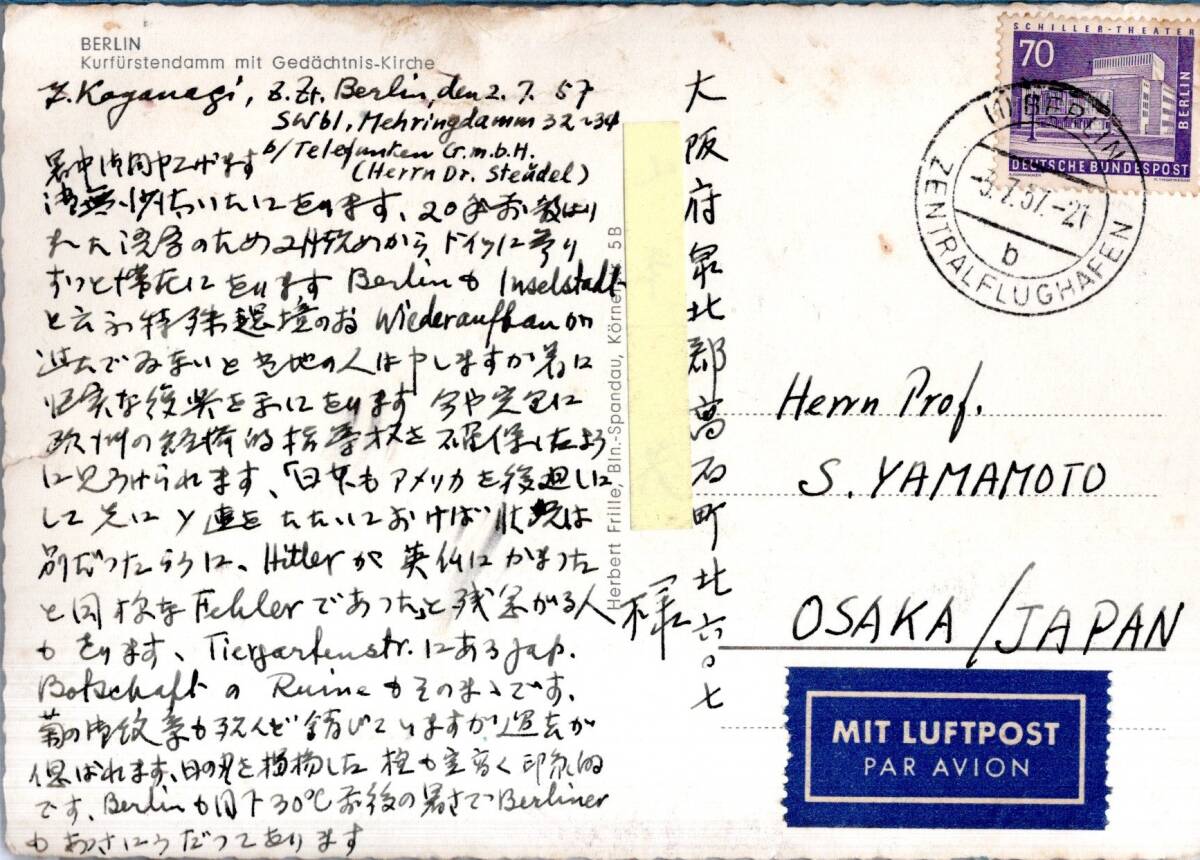 BERLIN
Kurfürstendamm mit Gedächtnis-Kirche
Z. Koyanagi, z. Zt. Berlin, den 2. 7. 57
SW61, Mehringdamm 32-34
b/Telefunken G.m.b.H.
(Herrn Dr. Steudel)
暑中御伺申上げます
御無沙汰いたしをります、20年
ドイツに参り
ずっと滞在しをります Berlinも Inselstadt
と云ふ特殊環境のお Wiederaufbau が
過去でゐまいと当地の人は申しますが着に
な復興を Berlin をります 今や完全に
欧州の経済的指導者を確保したよう
に見うけられます、「日本もアメリカを後廻しに
して先にソ連をたたいておけば状況は
別だったろうに、Hitlerが英仏にかまった
と同様なFehlerであった」と残念がる人
もをります、Tiergartenstr.にあるJap.
BotschaftのRuineもそのまゝです。
菊の御紋章も殆んど錆びていますが過去が
偲ばれます、日の丸を掲揚した柱も空高く印象的
です、Berlinも目下30℃前後の暑さでBerliner
もあつさにうだつてをります
大阪府泉北郡高石町北六〇七
様
Herbert Frille, Bln.-Spandau, Körner 5B
SCHILLER-THEATER
70
BERLIN
DEUTSCHE BUNDESPOST
BERLIN
-3.7.57.-21
b
ZENTRALFLUGHAFEN
Herrn Prof.
S. YAMAMOTO
OSAKA/JAPAN
MIT LUFTPOST
PAR AVION